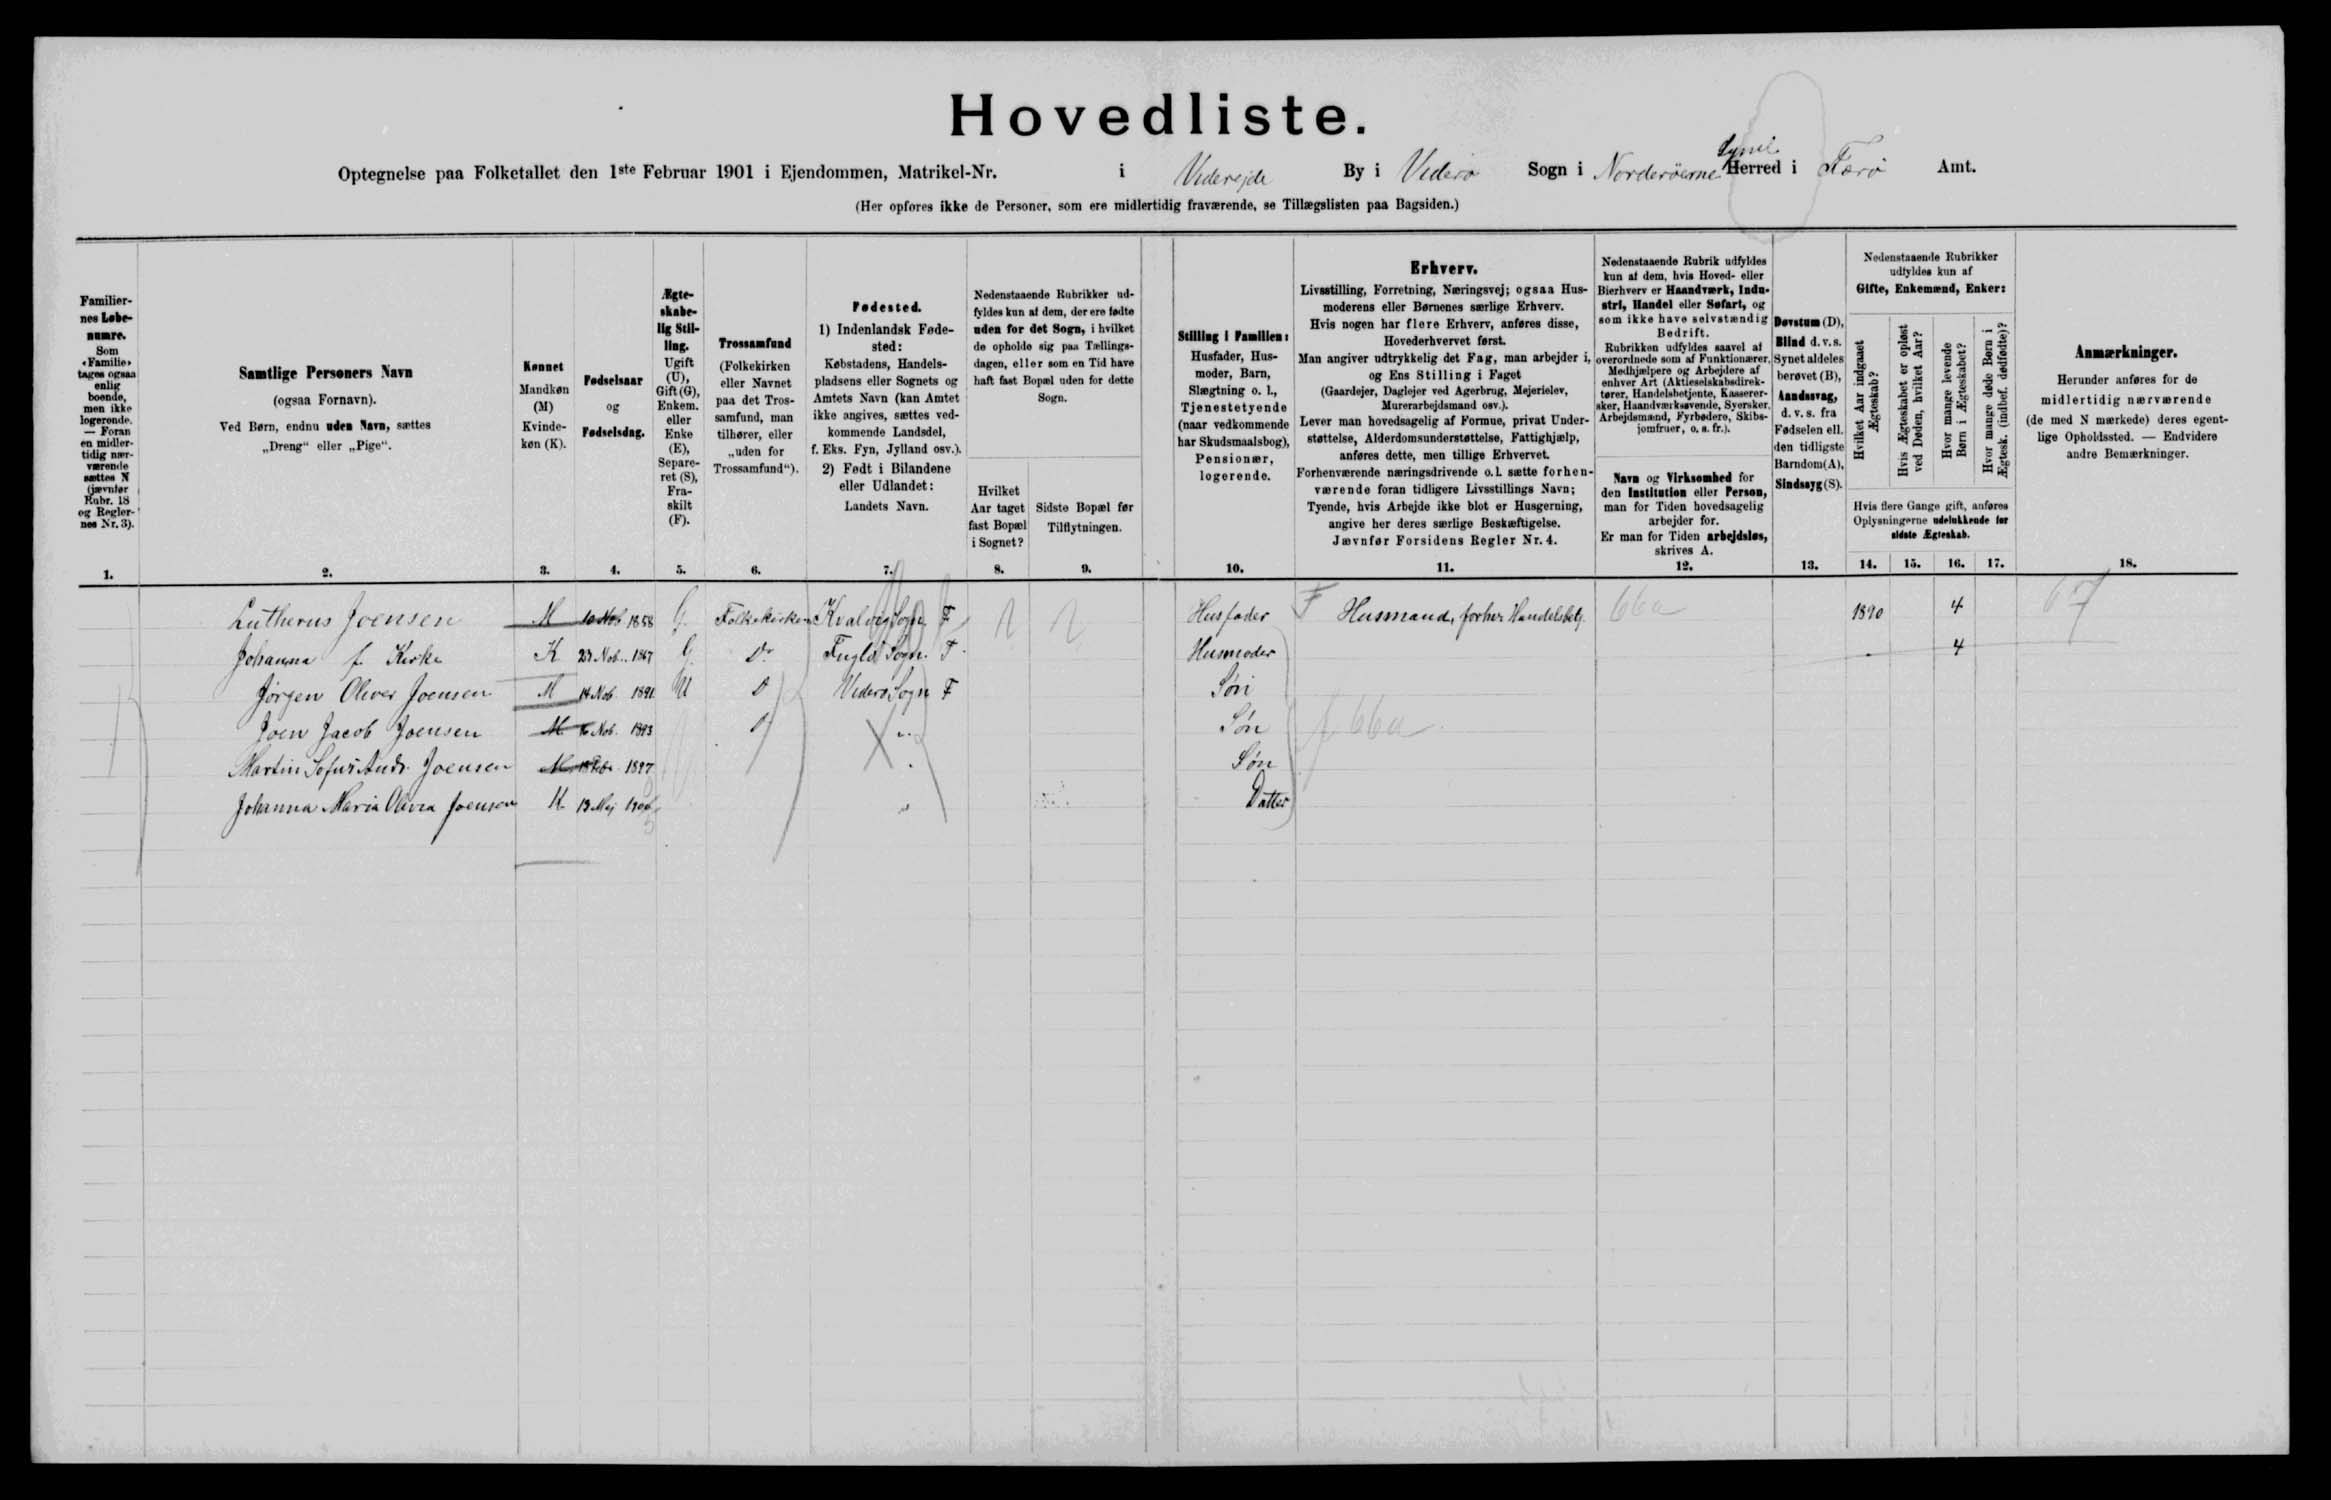 Hovedliste.
Optegnelse paa Folketallet den 1ste Februar 1901 i Ejendommen, Matrikel-Nr. i Viderejde By i Viderø Sogn i Norderöerne Syssel Herred i Færö Amt.
(Her opføres ikke de Personer, som ere midlertidig fraværende, se Tillægslisten paa Bagsiden.)
Familiernes Løbenumre.
Som «Familie» tages ogsaa enlig boende, men ikke logerende. — Foran en midlertidig nærværende sættes N (jævnfør Rubr. 18 og Reglernes Nr. 3).
1.
Samtlige Personers Navn
(ogsaa Fornavn).
Ved Børn, endnu uden Navn, sættes
„Dreng“ eller „Pige“.
2.
Kønnet
Mandkøn (M)
Kvindekøn (K).
3.
Fødselsaar
og
Fødselsdag.
4.
Ægteskabelig Stilling.
Ugift (U), Gift (G), Enkem. eller Enke (E), Separeret (S), Fraskilt (F).
5.
Trossamfund
(Folkekirken eller Navnet paa det Trossamfund, man tilhører, eller „uden for Trossamfund“).
6.
Fødested.
1) Indenlandsk Fødested:
Købstadens, Handelspladsens eller Sognets og Amtets Navn (kan Amtet ikke angives, sættes vedkommende Landsdel, f. Eks. Fyn, Jylland osv.).
2) Født i Bilandene eller Udlandet:
Landets Navn.
7.
Nedenstaaende Rubrikker udfyldes kun af dem, der ere fødte uden for det Sogn, i hvilket de opholde sig paa Tællingsdagen, eller som en Tid have haft fast Bopæl uden for dette Sogn.
Hvilket Aar taget fast Bopæl i Sognet?
8.
Sidste Bopæl før Tilflytningen.
9.
Stilling i Familien:
Husfader, Husmoder, Barn, Slægtning o. l., Tjenestetyende (naar vedkommende har Skudsmaalsbog), Pensionær, logerende.
10.
Erhverv.
Livsstilling, Forretning, Næringsvej; ogsaa Husmoderens eller Børnenes særlige Erhverv.
Hvis nogen har flere Erhverv, anføres disse, Hovederhvervet først.
Man angiver udtrykkelig det Fag, man arbejder i, og Ens Stilling i Faget
(Gaardejer, Daglejer ved Agerbrug, Mejerielev, Murerarbejdsmand osv.).
Lever man hovedsagelig af Formue, privat Understøttelse, Alderdomsunderstøttelse, Fattighjælp, anføres dette, men tillige Erhvervet.
Forhenværende næringsdrivende o.l. sætte forhenværende foran tidligere Livsstillings Navn;
Tyende, hvis Arbejde ikke blot er Husgerning, angive her deres særlige Beskæftigelse.
Jævnfør Forsidens Regler Nr. 4.
11.
Nedenstaaende Rubrik udfyldes kun af dem, hvis Hoved- eller Bierhverv er Haandværk, Industri, Handel eller Søfart, og som ikke have selvstændig Bedrift.
Rubrikken udfyldes saavel af overordnede som af Funktionærer, Medhjælpere og Arbejdere af enhver Art (Aktieselskabsdirektører, Handelsbetjente, Kasserersker, Haandværkssvende, Syersker, Arbejdsmænd, Fyrbødere, Skibsjomfruer, o. s. fr.).
Navn og Virksomhed for den Institution eller Person, man for Tiden hovedsagelig arbejder for.
Er man for Tiden arbejdsløs, skrives A.
12.
Døvstum (D), Blind d. v. s. Synet aldeles berøvet (B), Aandssvag, d. v. s. fra Fødselen ell. den tidligste Barndom (A), Sindssyg (S).
13.
Nedenstaaende Rubrikker udfyldes kun af
Gifte, Enkemænd, Enker:
Hvilket Aar indgaaet Ægteskab?
Hvis Ægteskabet er opløst ved Døden, hvilket Aar?
Hvor mange levende Børn i Ægteskabet?
Hvor mange døde Børn i Ægtesk. (indbef. dødfødte)?
Hvis flere Gange gift, anføres Oplysningerne udelukkende for sidste Ægteskab.
14. 15. 16. 17.
Anmærkninger.
Herunder anføres for de midlertidig nærværende (de med N mærkede) deres egentlige Opholdssted. — Endvidere andre Bemærkninger.
18.
Lutherus Joensen M 10 Nob 1858 G. Folkekirken Kvalvig Sogn F Husfader F Husmand, forhv. Handelsbetj. 66a 1890 4 67
Johanna f. Kirke K 23 Nob. 1867 G. Do Fuglø Sogn. F Husmoder 4
Jörgen Oliver Joensen M 14 Nob. 1891 U D Viderø Sogn F Sön
Joen Jacob Joensen M Nob. 1893 D " Sön f 66a
Martin Sofus Andr. Joensen M 1897 " Søn
Johanna Maria Olivia Joensen K 13 Maj " Datter